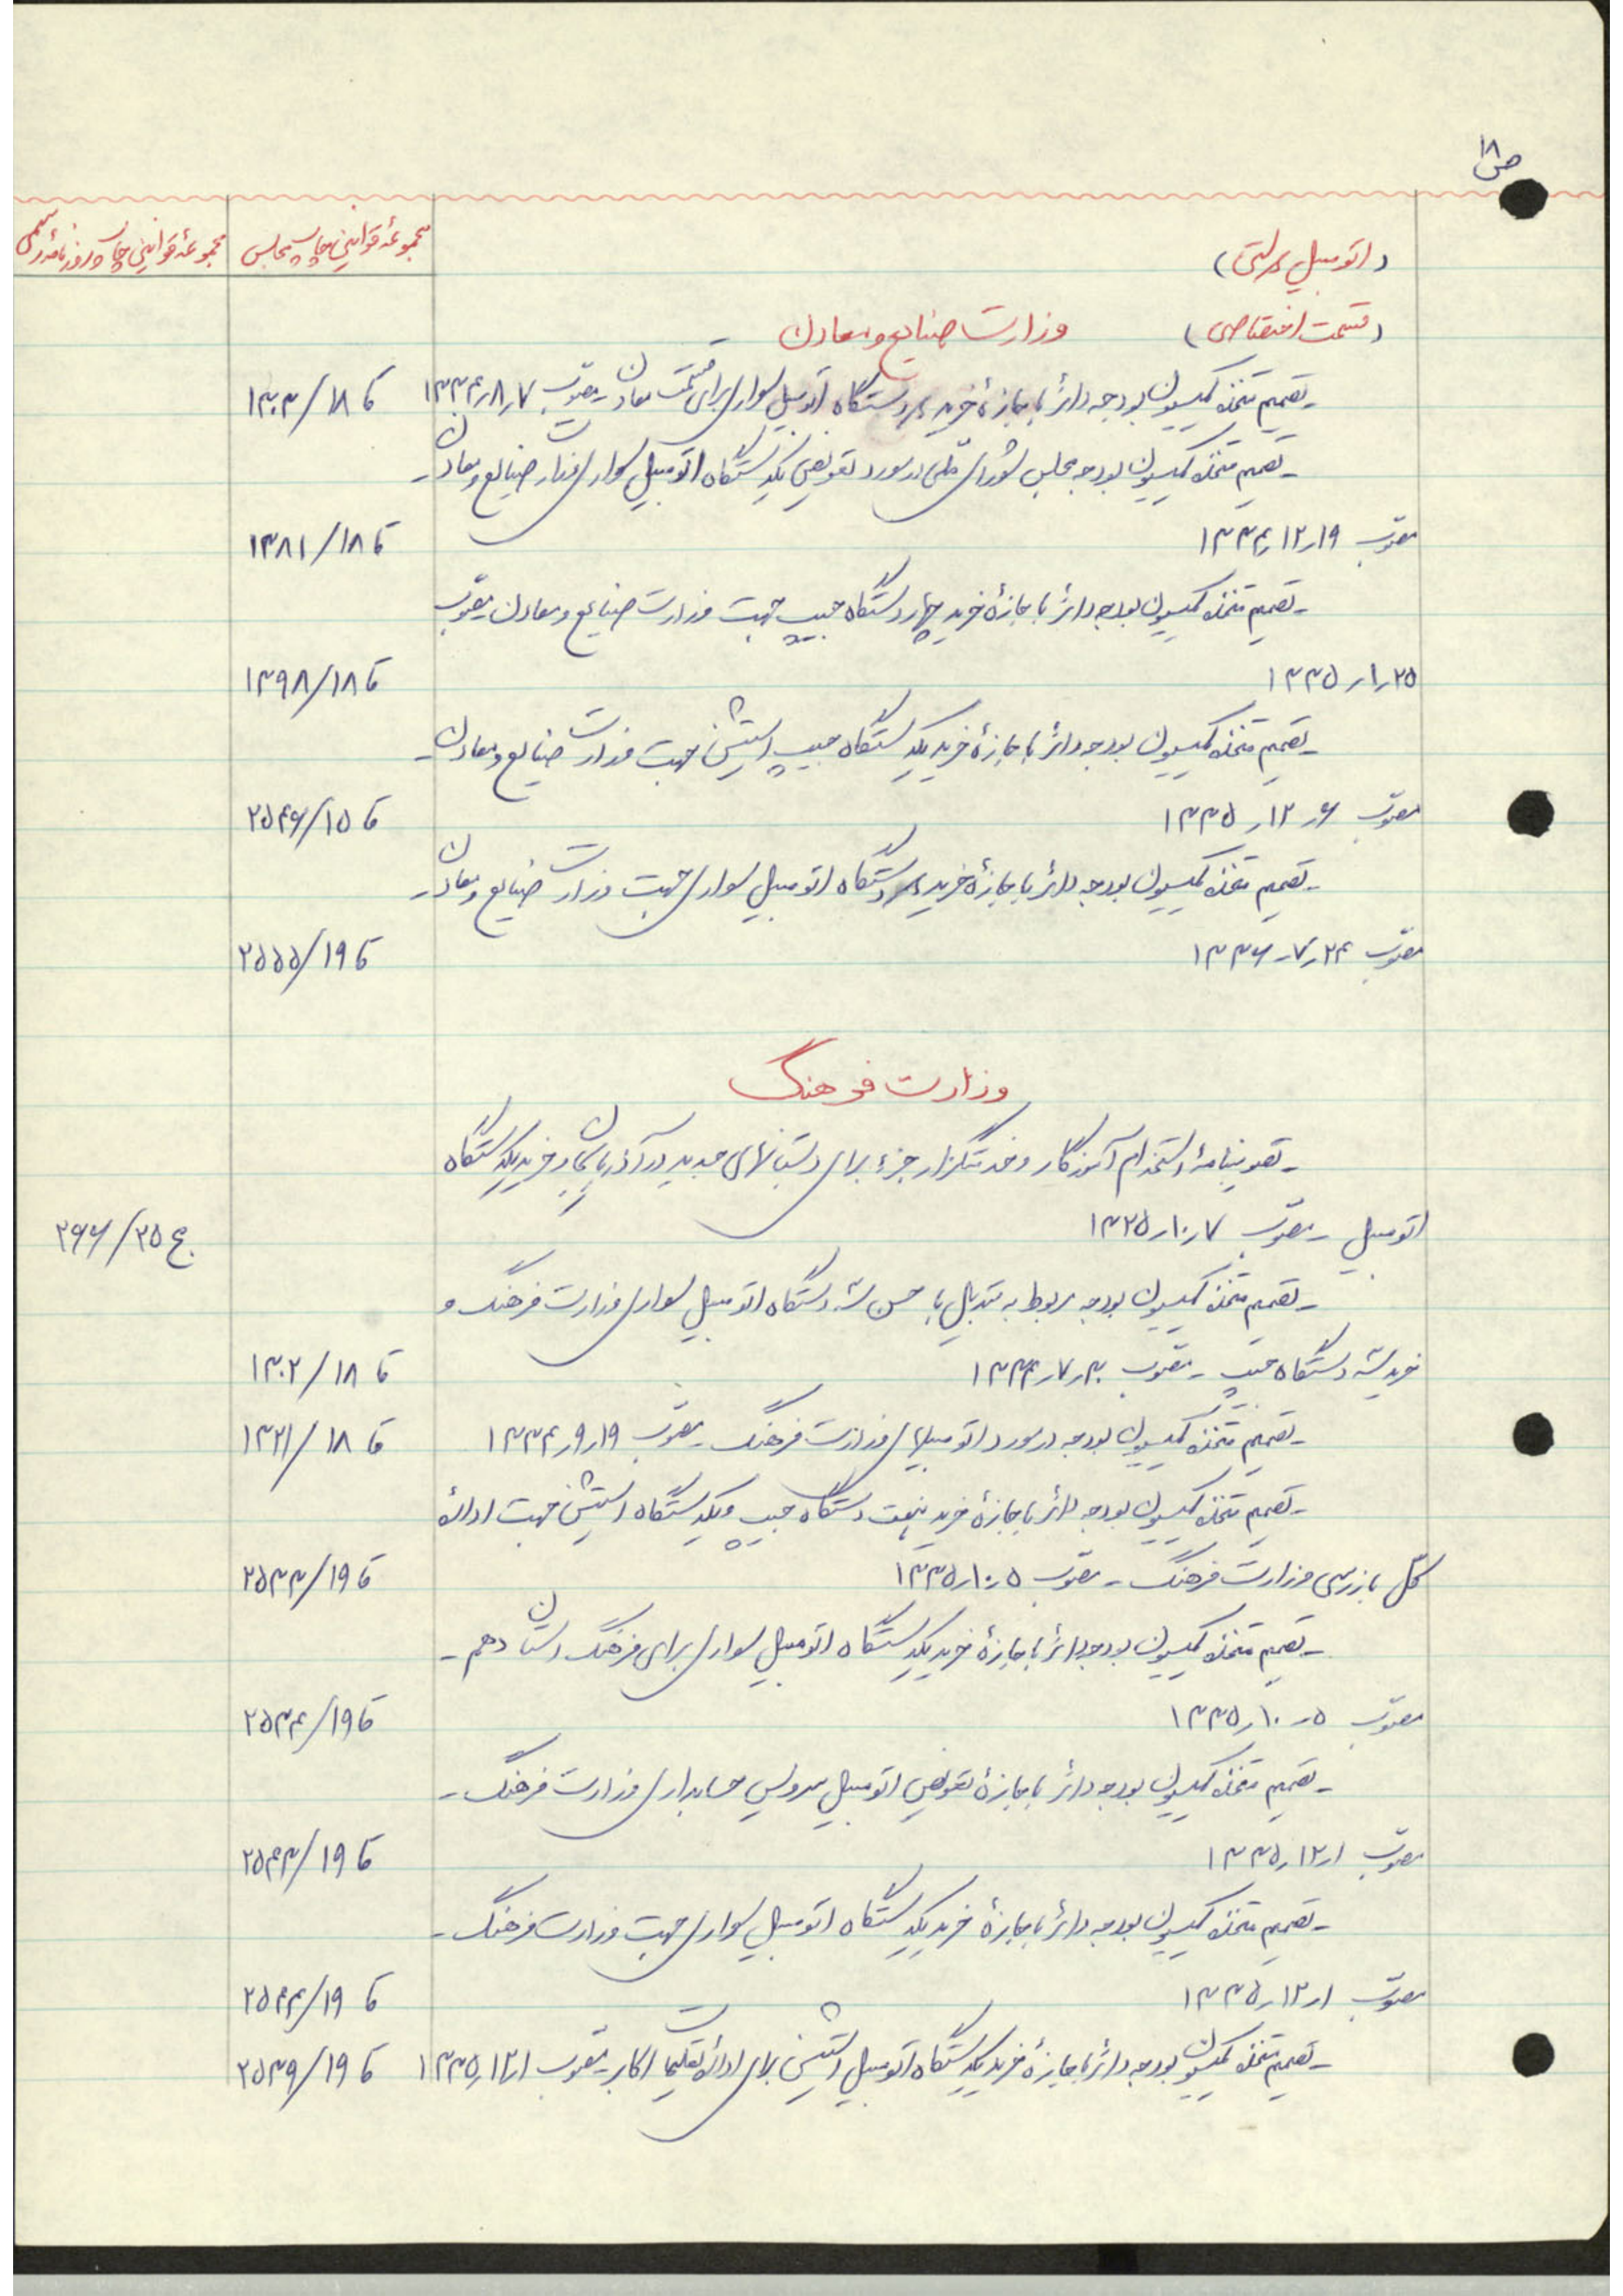 ص ۱۸
(اتومبیل دولتی) مجموعهٔ قوانین چاپ مجلس مجموعهٔ قوانین چاپ روزنامهٔ رسمی
(قسمت اختصاصی) وزارت صنایع و معادن
ـ تصمیم متخذه کمیسیون بودجه دائر باجازهٔ خرید دستگاه اتومبیل سواری برای قسمت معادن ـ مصوب ۷ر۸ر۱۳۳۴ قا ۱۸/۱۳۰۳
ـ تصمیم متخذه کمیسیون بودجه مجلس شورای ملی در مورد تعویض یکدستگاه اتومبیل سواری وزارت صنایع و معادن ـ
مصوب ۱۹ر۱۲ر۱۳۳۴ قا ۱۸/۱۳۸۱
ـ تصمیم متخذه کمیسیون بودجه دائر باجازهٔ خرید چهار دستگاه جیپ جهت وزارت صنایع و معادن ـ مصوب
۲۵ر۱ر۱۳۳۵ قا ۱۸/۱۳۹۸
ـ تصمیم متخذه کمیسیون بودجه دائر باجازهٔ خرید یکدستگاه جیپ استیشن جهت وزارت صنایع و معادن ـ
مصوب ۶ر۱۲ر۱۳۳۵ قا ۱۵/۲۵۴۶
ـ تصمیم متخذه کمیسیون بودجه دائر باجازهٔ خرید دستگاه اتومبیل سواری جهت وزارت صنایع و معادن ـ
مصوب ۲۴ر۷ر۱۳۳۶ قا ۱۹/۲۵۵۵
وزارت فرهنگ
ـ تصویبنامهٔ استخدام آموزگار و خدمتگزار جزء برای دبستانهای جدید در آذربایجان و خرید یکدستگاه
اتومبیل ـ مصوب ۷ر۱۰ر۱۳۲۵ ج ۲۵/۲۶۶
ـ تصمیم متخذه کمیسیون بودجه مربوط به تبدیل با حسن سه دستگاه اتومبیل سواری وزارت فرهنگ و
خرید سه دستگاه جیپ ـ مصوب ۳۰ر۷ر۱۳۳۴ قا ۱۸/۱۳۰۲
ـ تصمیم متخذه کمیسیون بودجه در مورد اتومبیلهای وزارت فرهنگ ـ مصوب ۱۹ر۹ر۱۳۳۴ قا ۱۸/۱۳۲۱
ـ تصمیم متخذه کمیسیون بودجه دائر باجازهٔ خرید هفت دستگاه جیپ و یکدستگاه استیشن جهت ادارهٔ
کل بازرسی وزارت فرهنگ ـ مصوب ۵ر۱۰ر۱۳۳۵ قا ۱۹/۲۵۳۳
ـ تصمیم متخذه کمیسیون بودجه دائر باجازهٔ خرید یکدستگاه اتومبیل سواری برای فرهنگ استان دهم ـ
مصوب ۵ر۱۰ر۱۳۳۵ قا ۱۹/۲۵۳۴
ـ تصمیم متخذه کمیسیون بودجه دائر باجازهٔ تعویض اتومبیل سرویس حسابداری وزارت فرهنگ ـ
مصوب ۱ر۱۲ر۱۳۳۵ قا ۱۹/۲۵۴۳
ـ تصمیم متخذه کمیسیون بودجه دائر باجازهٔ خرید یکدستگاه اتومبیل سواری جهت وزارت فرهنگ ـ
مصوب ۱ر۱۲ر۱۳۳۵ قا ۱۹/۲۵۴۴
ـ تصمیم متخذه کمیسیون بودجه دائر باجازهٔ خرید یکدستگاه اتومبیل استیشن برای ادارهٔ تعلیمات اکابر ـ مصوب ۱ر۱۲ر۱۳۳۵ قا ۱۹/۲۵۳۹